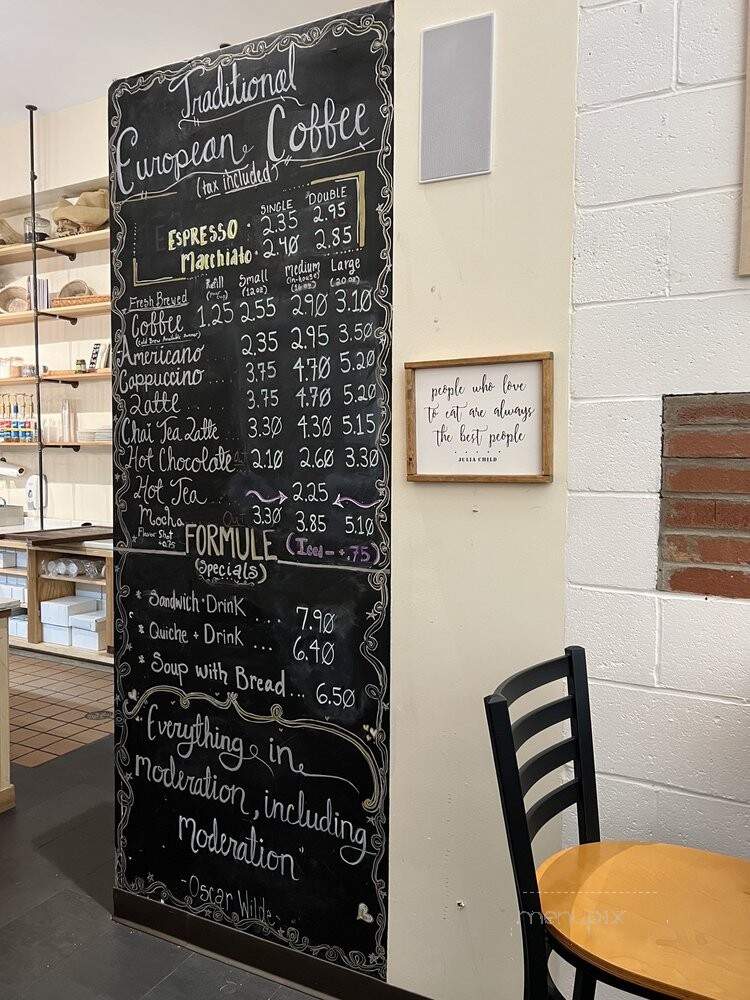 Traditional
European Coffee
(tax included)
SINGLE DOUBLE
ESPRESSO . 2.35 2.95
Macchiato . 2.40 2.85
Refill Small Medium Large
(12oz) (in-house) (20oz)
(16oz)
Fresh Brewed
Coffee 1.25 2.55 2.90 3.10
Americano 2.35 2.95 3.50
Cappuccino ... 3.75 4.70 5.20
Latte ... 3.75 4.70 5.20
Chai Tea Latte ... 3.30 4.30 5.15
Hot Chocolate 2.10 2.60 3.30
Hot Tea ... 2.25
Mocha 3.30 3.85 5.10
Flavor Shot
+0.75
FORMULE (Iced - +.75)
(Specials)
* Sandwich + Drink ... 7.90
* Quiche + Drink ... 6.40
* Soup with Bread... 6.50
"Everything in
moderation, including
moderation"
-Oscar Wilde-
people who love
to eat are always
the best people
JULIA CHILD
menupix